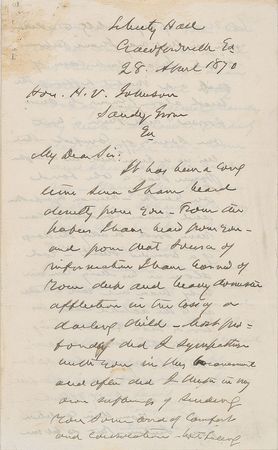 Liberty Hall
Crawfordville Ga
28. April 1870
Hon. H. V. Johnson
Sandy Grove
Ga
My Dear Sir:
It has been a long
time since I have heard
directly from you - From the
papers I have heard from you -
and from that source of
information I have learned of
your deep and heavy domestic
affliction in the loss of a
darling child - Most pro-
foundly did I sympathise
with you in this bereavement
and often did I wish in my
own sufferings of sending
you some word of comfort
and consolation -